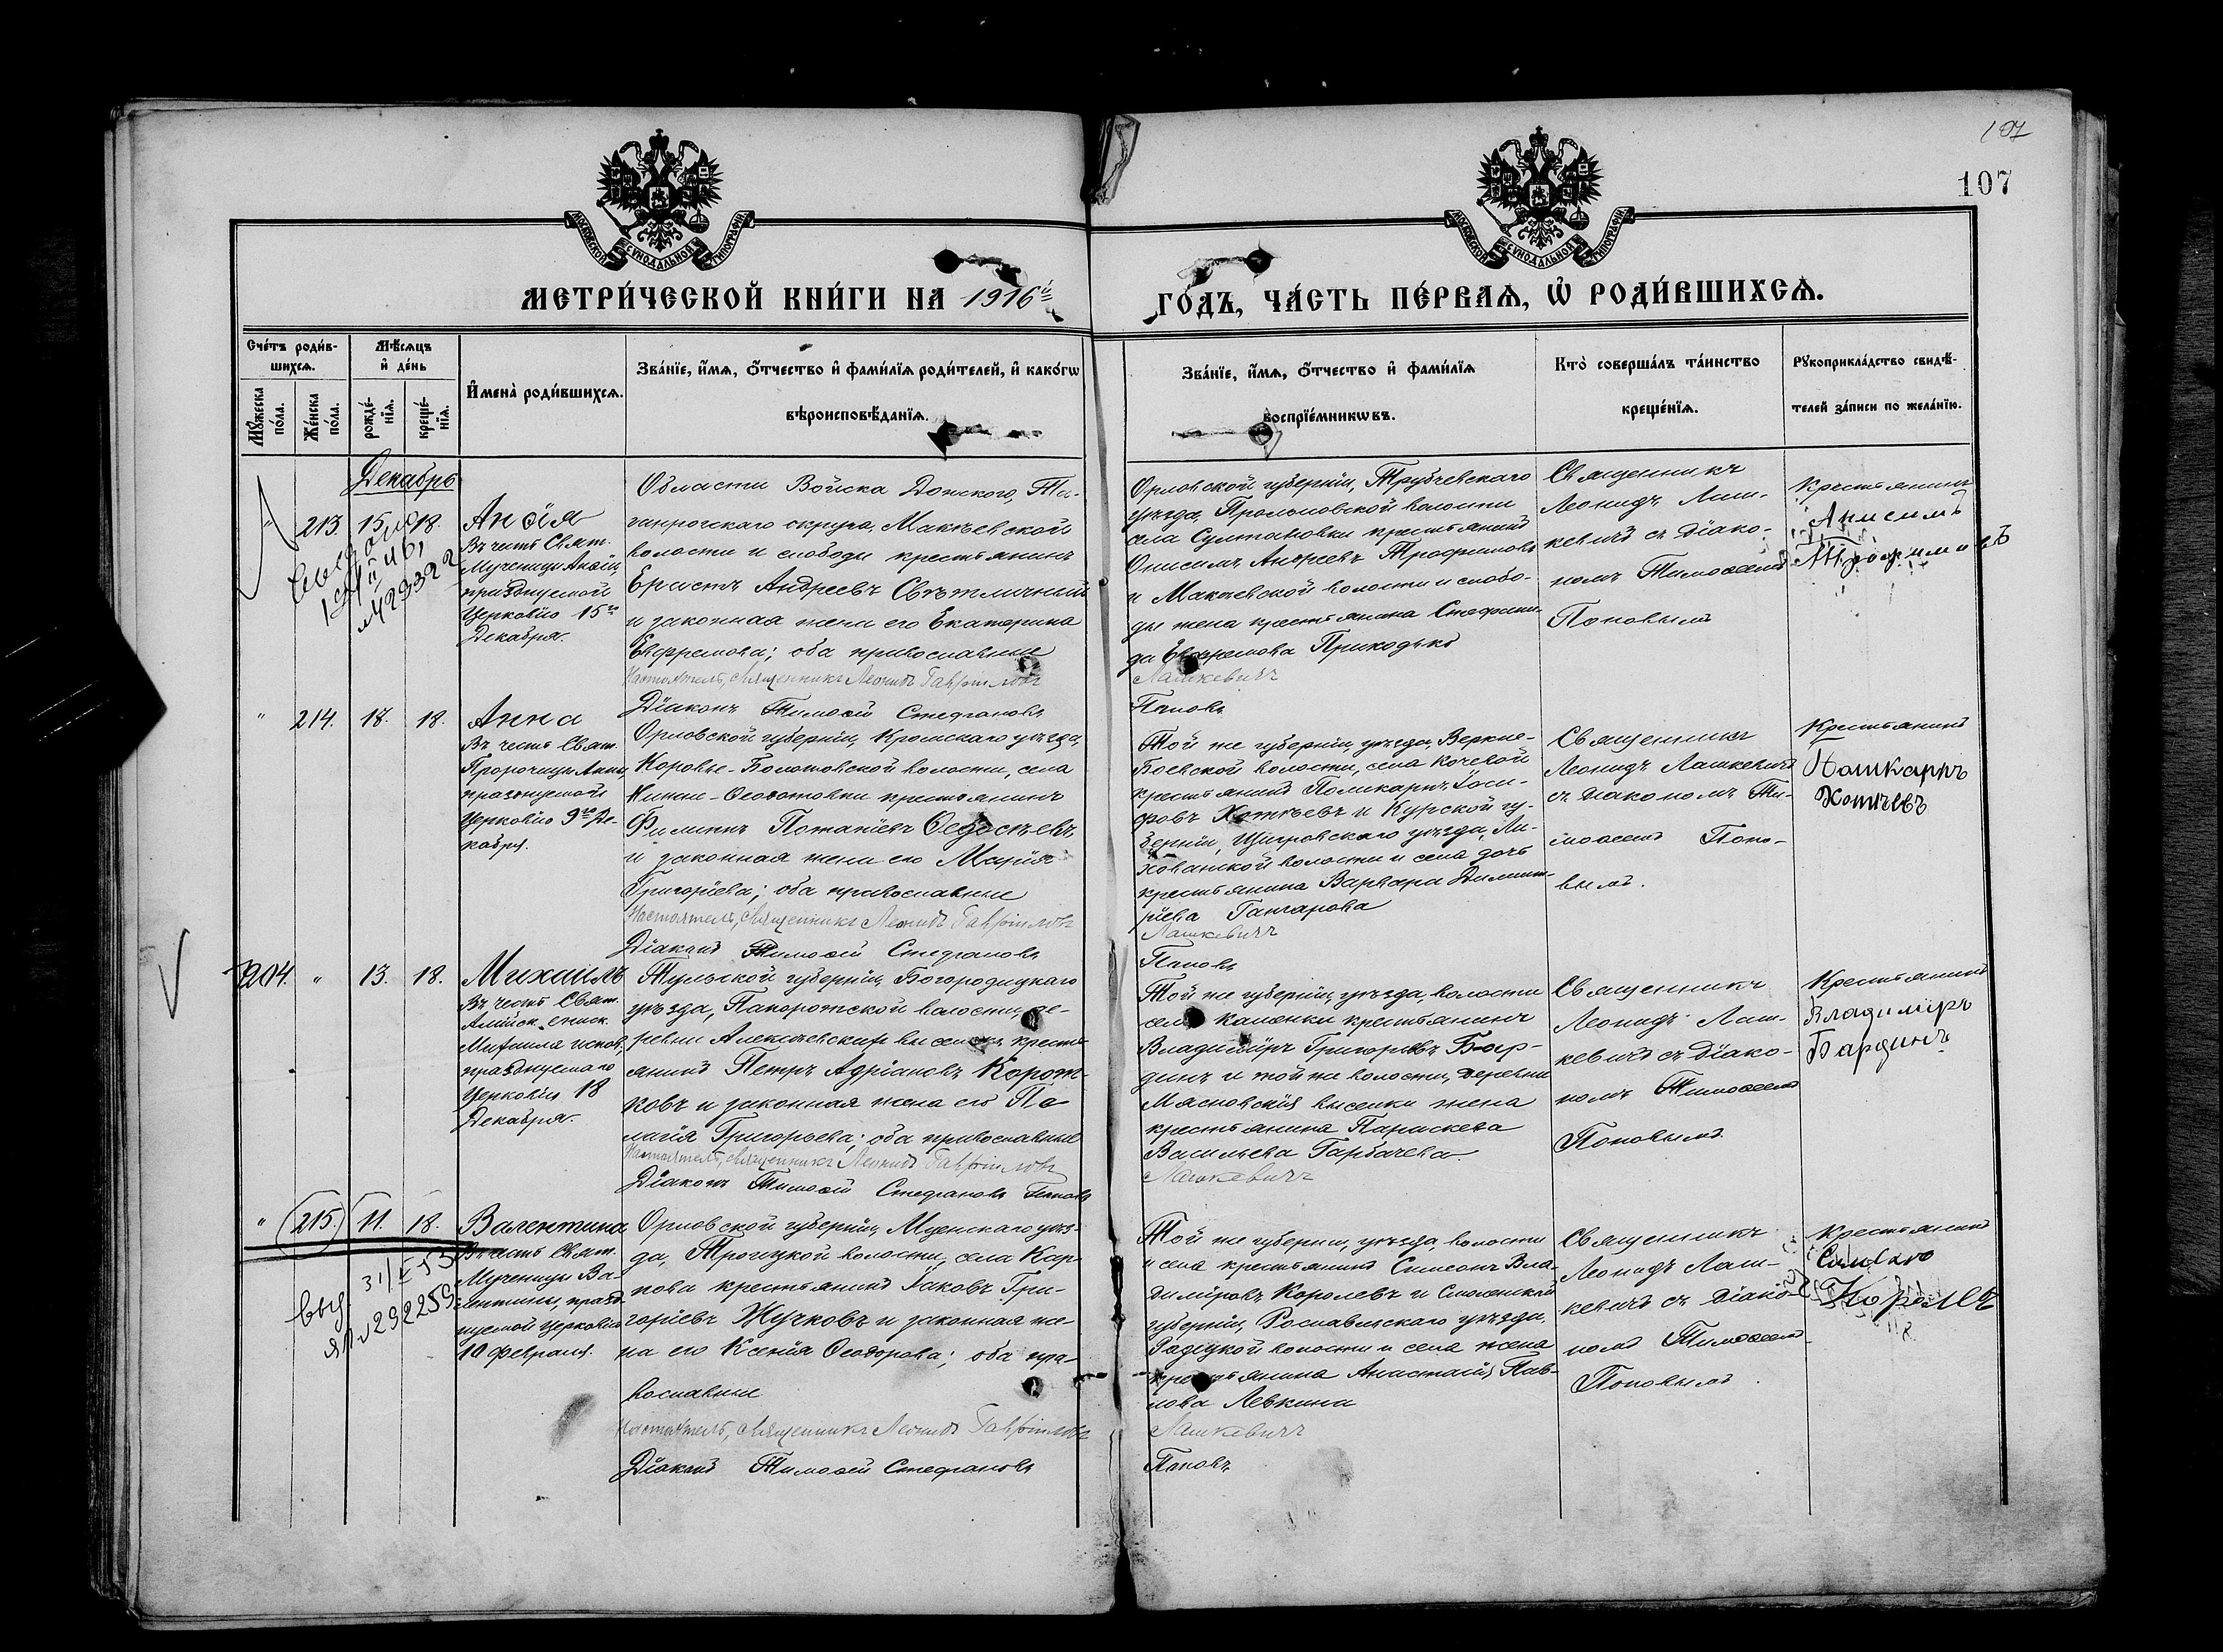 107
107
МОСКОВСКОЙ СѴНОДАЛЬНОЙ ТИПОГРАФІИ
МОСКОВСКОЙ СѴНОДАЛЬНОЙ ТИПОГРАФІИ
МЕТРИ́ЧЕСКОЙ КНИ́ГИ НА 1916й
ГО́ДЪ, ЧА́СТЬ ПЕ́РВАѦ, Ѡ҆ РОДИ́ВШИХСѦ.
Сче́тъ роди́в-
шихсѧ.
Мꙋ́жеска по́ла.
Же́нска по́ла.
Мѣ́сѧцъ
и҆ де́нь
рожде́-
нїѧ.
креще́-
нїѧ.
И҆мена̀ роди́вшихсѧ.
Зва́нїе, и҆́мѧ, ѻ҆́тчество и҆ фами́лїѧ роди́телей, и҆ како́гѡ
вѣроисповѣ́данїѧ.
Зва́нїе, и҆́мѧ, ѻ҆́тчество и҆ фами́лїѧ
воспрїе́мникѡвъ.
Кто̀ соверша́лъ та́инство
креще́нїѧ.
Рꙋкоприкла́дство свидѣ́-
телей за́писи по жела́нїю.
Декабрь
213. 15. 18.
Анѳія
Въ честь Свят.
Мученицы Анѳіи,
празднуемой
Церковію 15го
Декабря.
Области Войска Донского, Та-
ганрогскаго округа, Макѣевской
волости и слободы крестьянинъ
Ерастъ Андреевъ Свѣтличный
и законная жена его Екатерина
Евфремова; оба православные
Настоятель, священникъ Леонидъ Гавріиловъ
Діаконъ Тимоѳей Стефановъ
Орловской губерніи, Трубчевскаго
уѣзда, волости
села Султановки крестьянинъ
Онисимъ Андреевъ Трофимовъ
и Макѣевской волости и слобо-
ды жена крестьянина Стефани-
да Евфремова Приходько
Лашкевичъ
Поповъ
Священникъ
Леонидъ Лаш-
кевичъ съ діако-
номъ Тимоѳеемъ
Поповымъ
Крестьянинъ
Анисимъ
Трофимовъ
" 214. 18. 18.
Анна
Въ честь Свят.
Пророчицы Анны,
празднуемой
Церковію 9го Де-
кабря.
Орловской губерніи, Кромскаго уѣзда,
Коровье-Болотовской волости, села
Нижне-Ѳедотовки крестьянинъ
Филиппъ Потапіевъ Ѳедосѣевъ
и законная жена его Марія
Григоріева; оба православные
Настоятель, священникъ Леонидъ Гавріиловъ
Діаконъ Тимоѳей Стефановъ
Той же губерніи, уѣзда, Верхне-
Боевской волости, села Кочевой
крестьянинъ Поликарпъ Іоси-
фовъ Хотѣевъ и Курской гу-
берніи, Щигровскаго уѣзда, Ли-
хованской волости и села дочь
крестьянина Варвара Димит-
ріева Гончарова
Лашкевичъ
Поповъ
Священникъ
Леонидъ Лашкевичъ
съ діакономъ Ти-
моѳеемъ Попо-
вымъ.
Крестьянинъ
Хотѣевъ
204. " 13. 18.
Михаилъ
Въ честь Свят.
еписк.
Михаила испов.,
празднуемаго
Церковію 18
Декабря.
Тульской губерніи, Богородицкаго
уѣзда, Папоротской волости, де-
ревни Алексѣевскихъ выселокъ кресть-
янинъ Петръ Адріановъ Корот-
ковъ и законная жена его Пе-
лагія Григорьева; оба православные
Настоятель, священникъ Леонидъ Гавріиловъ
Діаконъ Тимоѳей Стефановъ Поповъ
Той же губерніи, уѣзда, волости
села Каменки крестьянинъ
Владиміръ Григорьевъ Бар-
динъ и той же волости, деревни
Мясновскія выселки жена
крестьянина Параскева
Васильева Гарбачева
Лашкевичъ
Священникъ
Леонидъ Лаш-
кевичъ съ діако-
номъ Тимоѳеемъ
Поповымъ.
Крестьянинъ
Владиміръ
Бардинъ
" 215. 11. 18.
Валентина
Въ честь Свят.
Мученицы Ва-
лентины, празд-
нуемой Церковію
10 февраля.
Орловской губерніи, Мценскаго уѣз-
да, Троицкой волости, села Кар-
пова крестьянинъ Іаковъ Гри-
горіевъ Жучковъ и законная же-
на его Ксенія Ѳеодорова; оба пра-
вославные
Настоятель, священникъ Леонидъ Гавріиловъ
Діаконъ Тимоѳей Стефановъ
Той же губерніи, уѣзда, волости
и села крестьянинъ Симеонъ Вла-
диміровъ Королевъ и Смоленской
губерніи, Рославльскаго уѣзда,
Радецкой волости и села жена
крестьянина Анастасія Пав-
лова Левкина
Лашкевичъ
Поповъ
Священникъ
Леонидъ Лаш-
кевичъ съ діако-
номъ Тимоѳеемъ
Поповымъ.
Крестьянинъ
Королевъ